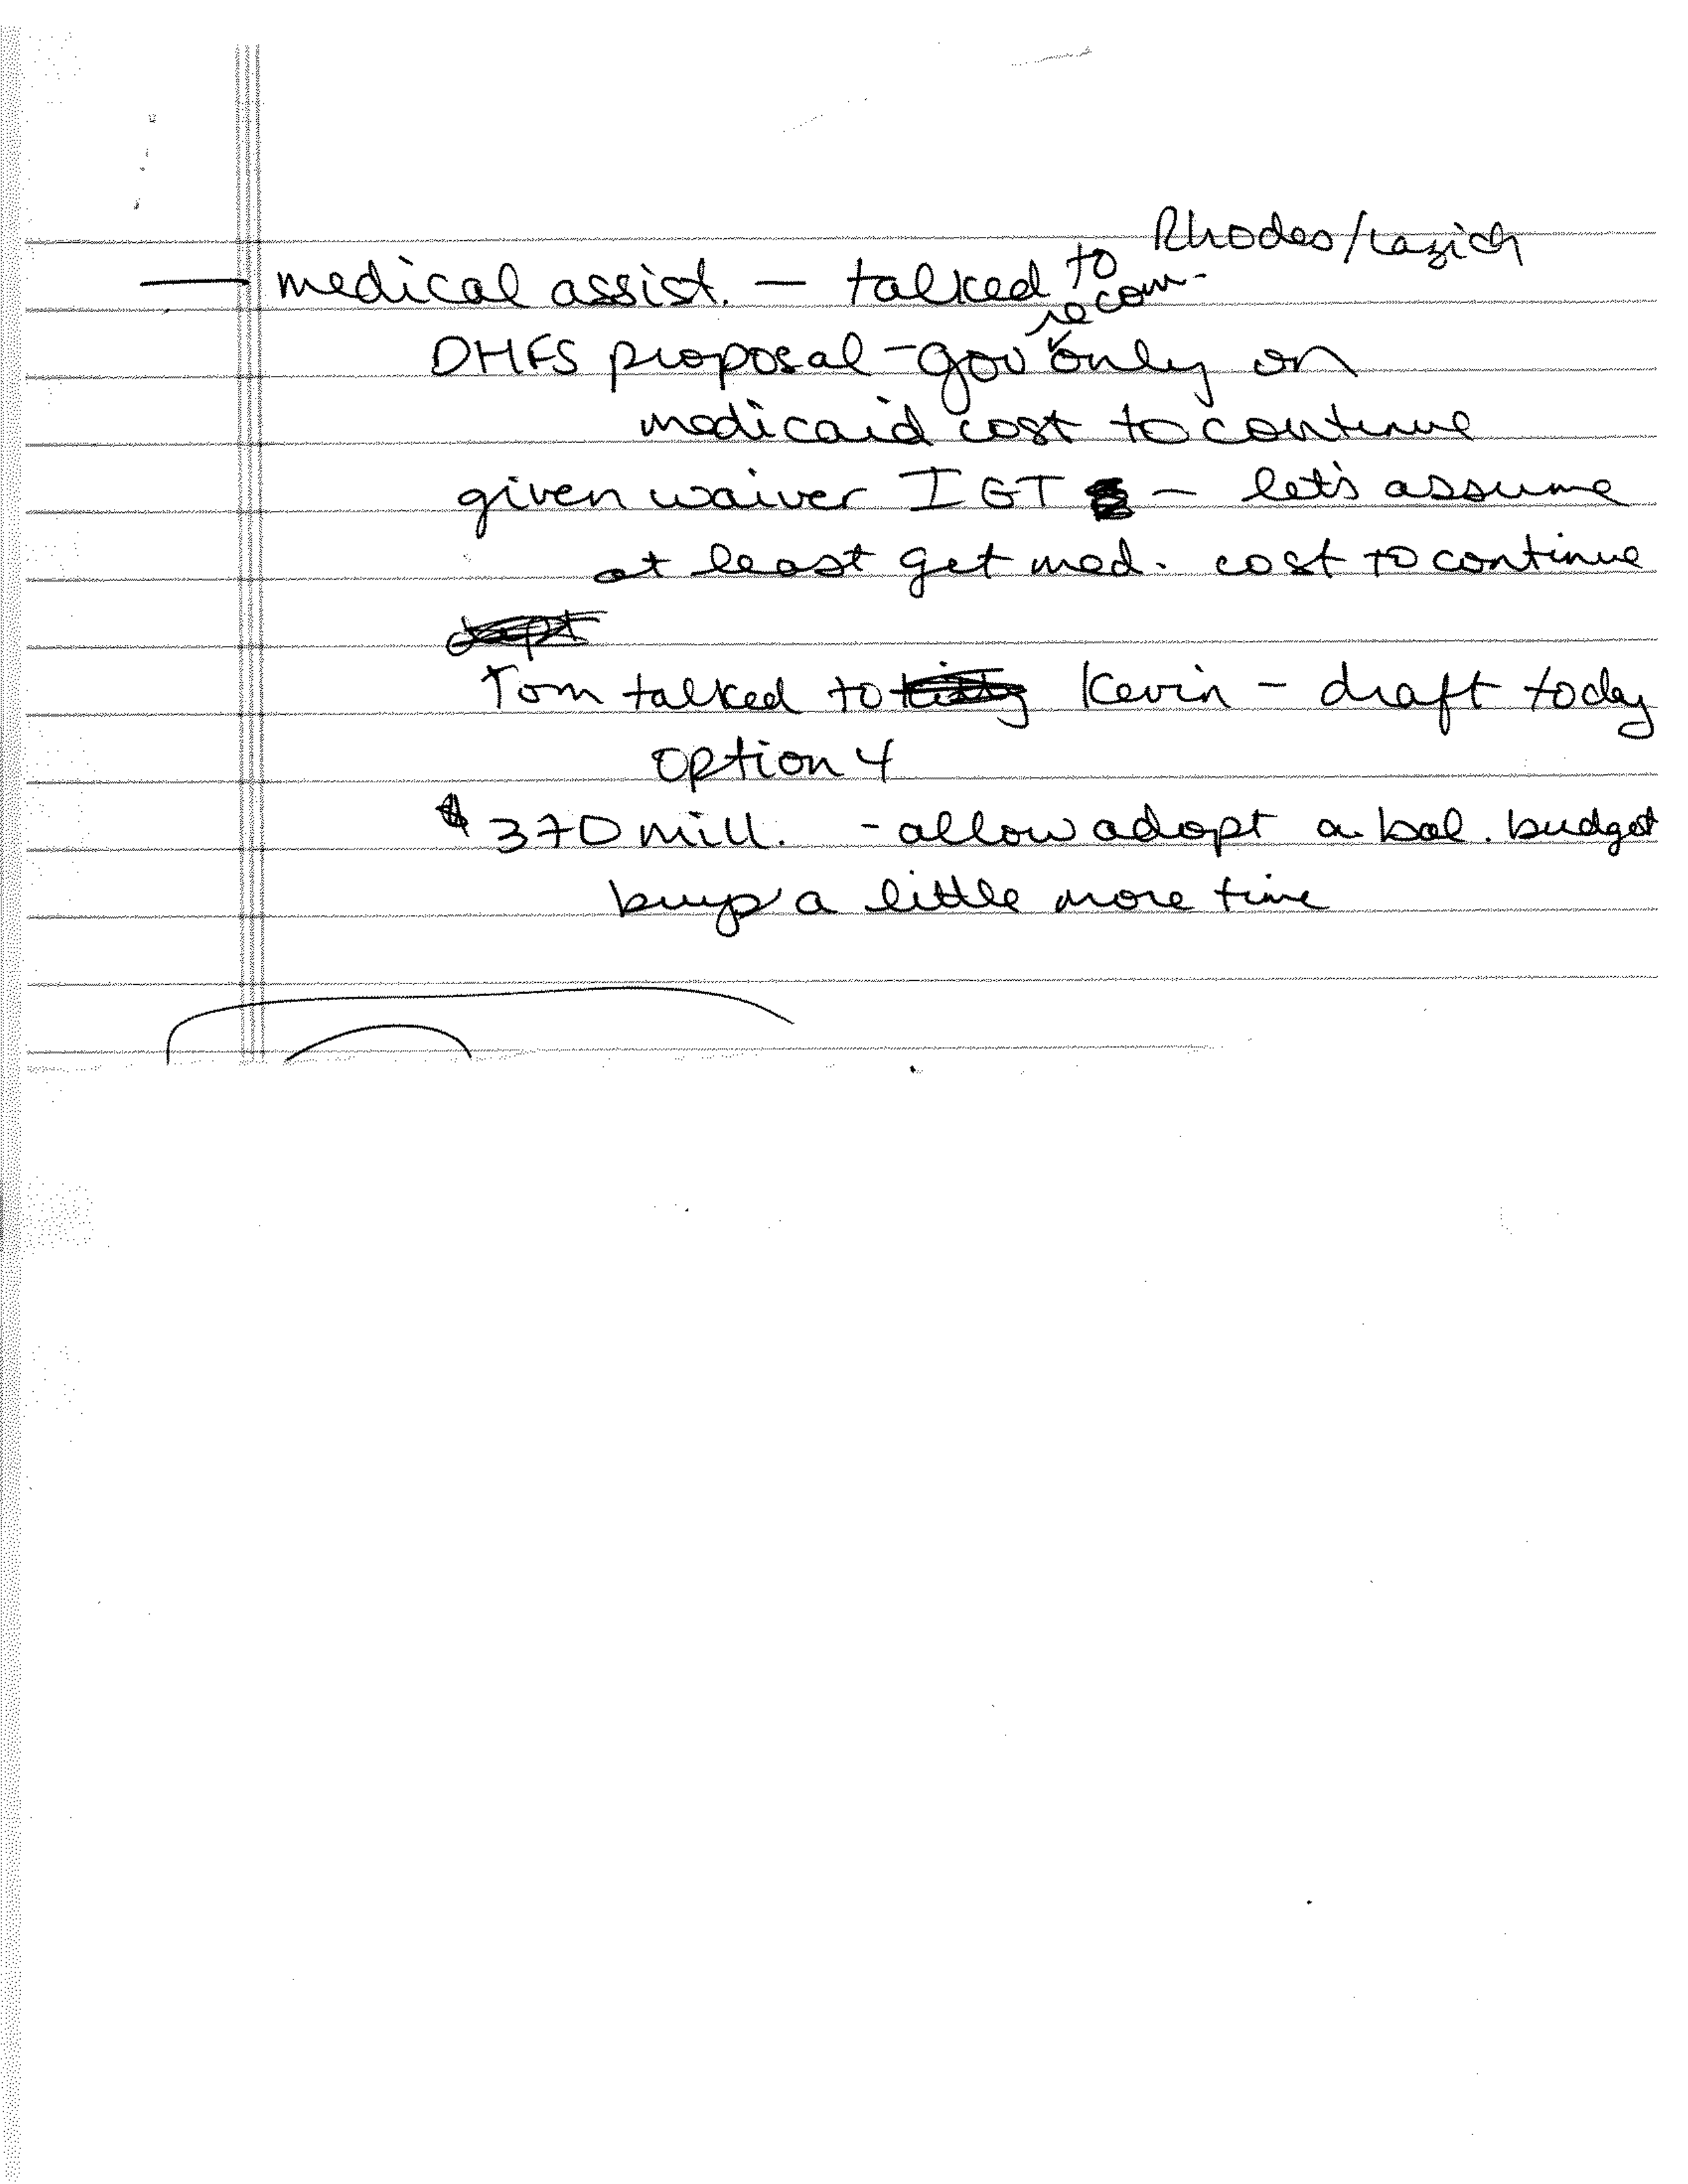 Rhodes/Lazich
— medical assist. — talked to
recom-
DHFS proposal - gov only on
medicaid cost to continue
given waiver IGT — let's assume
at least get med. cost to continue
Tom talked to Kevin - draft today
option 4
$370 mill. - allow adopt a bal. budget
buys a little more time